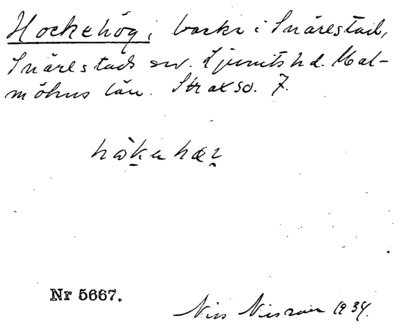 Hockehög, backe i Snårestad,
Snårestads sn. Ljunits hd. Mal-
möhus län. Strax so. 7.
Nr 5667.
Nils Nilsson 1934.